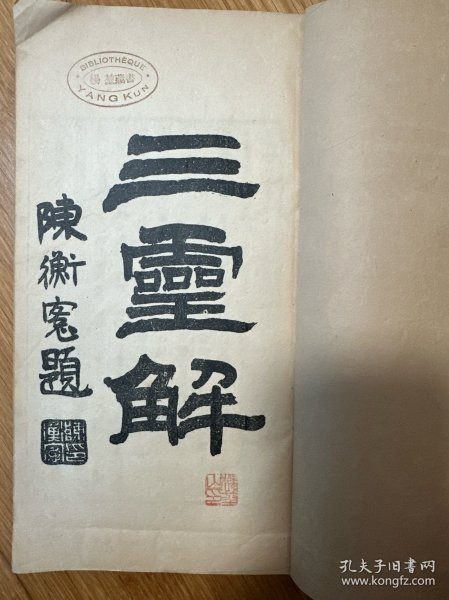 BIBLIOTHÈQUE
楊堃藏書
YANG KUN
三靈解
陳衡寬題
孔夫子旧书网
www.kongfz.com